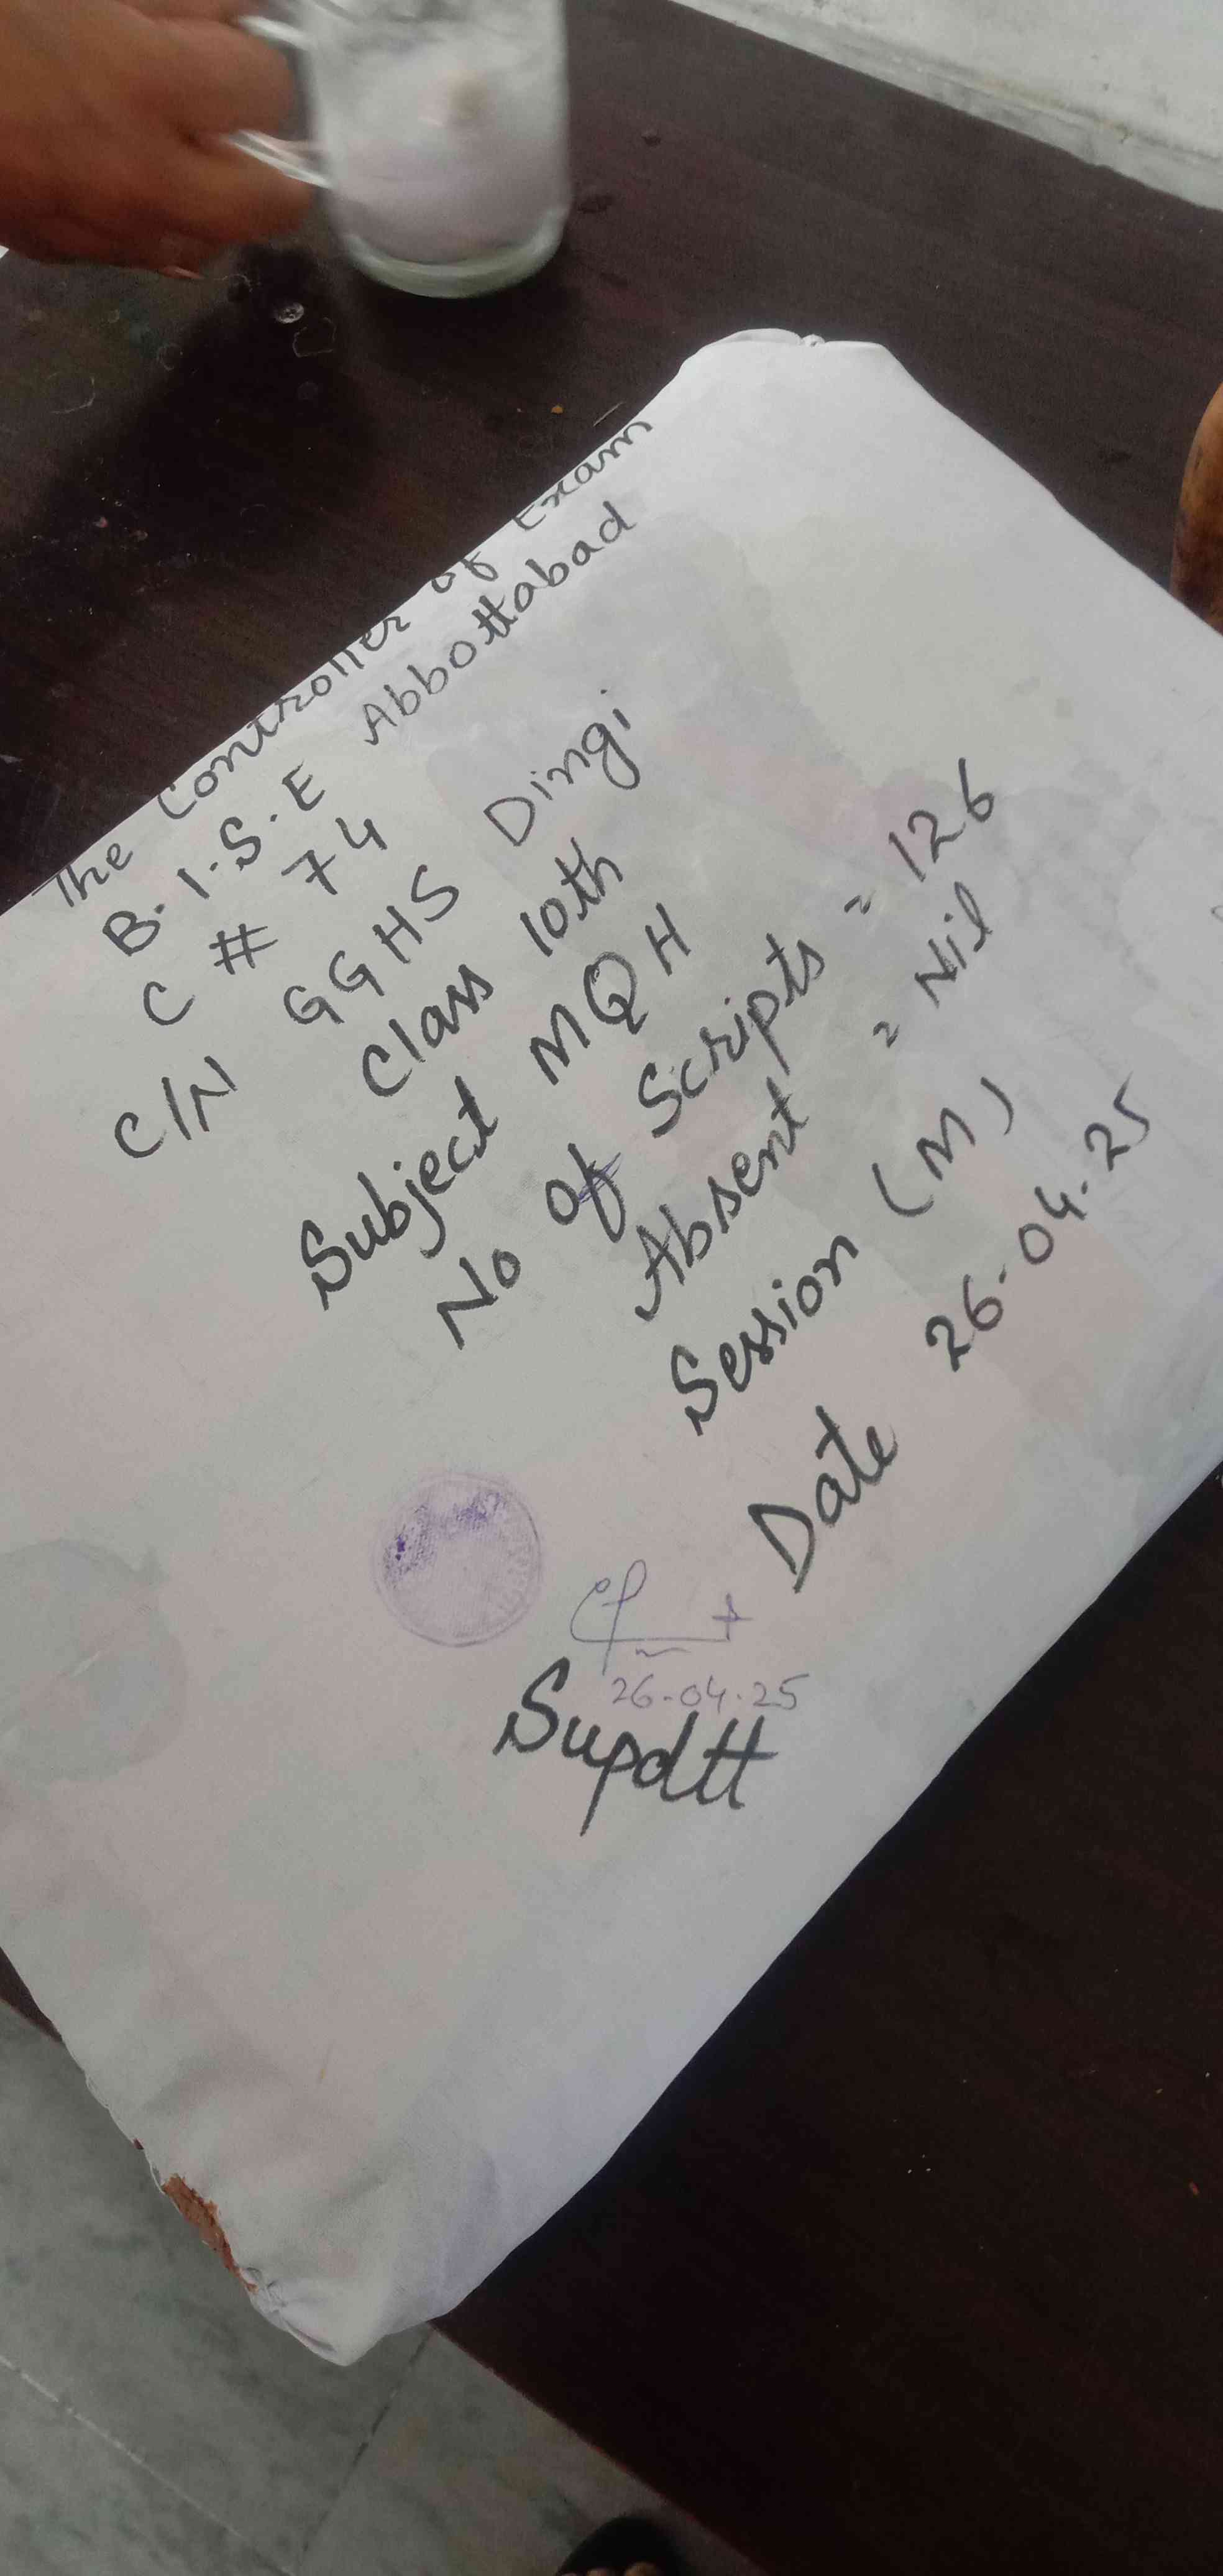 The Controller of Exam
B.I.S.E Abbottabad
C # 74
C/N GGHS Dingi
Class 10th
Subject MQH
No of Scripts = 126
Absent = Nil
Session (M)
Date 26-04-25
26-04-25
Supdtt